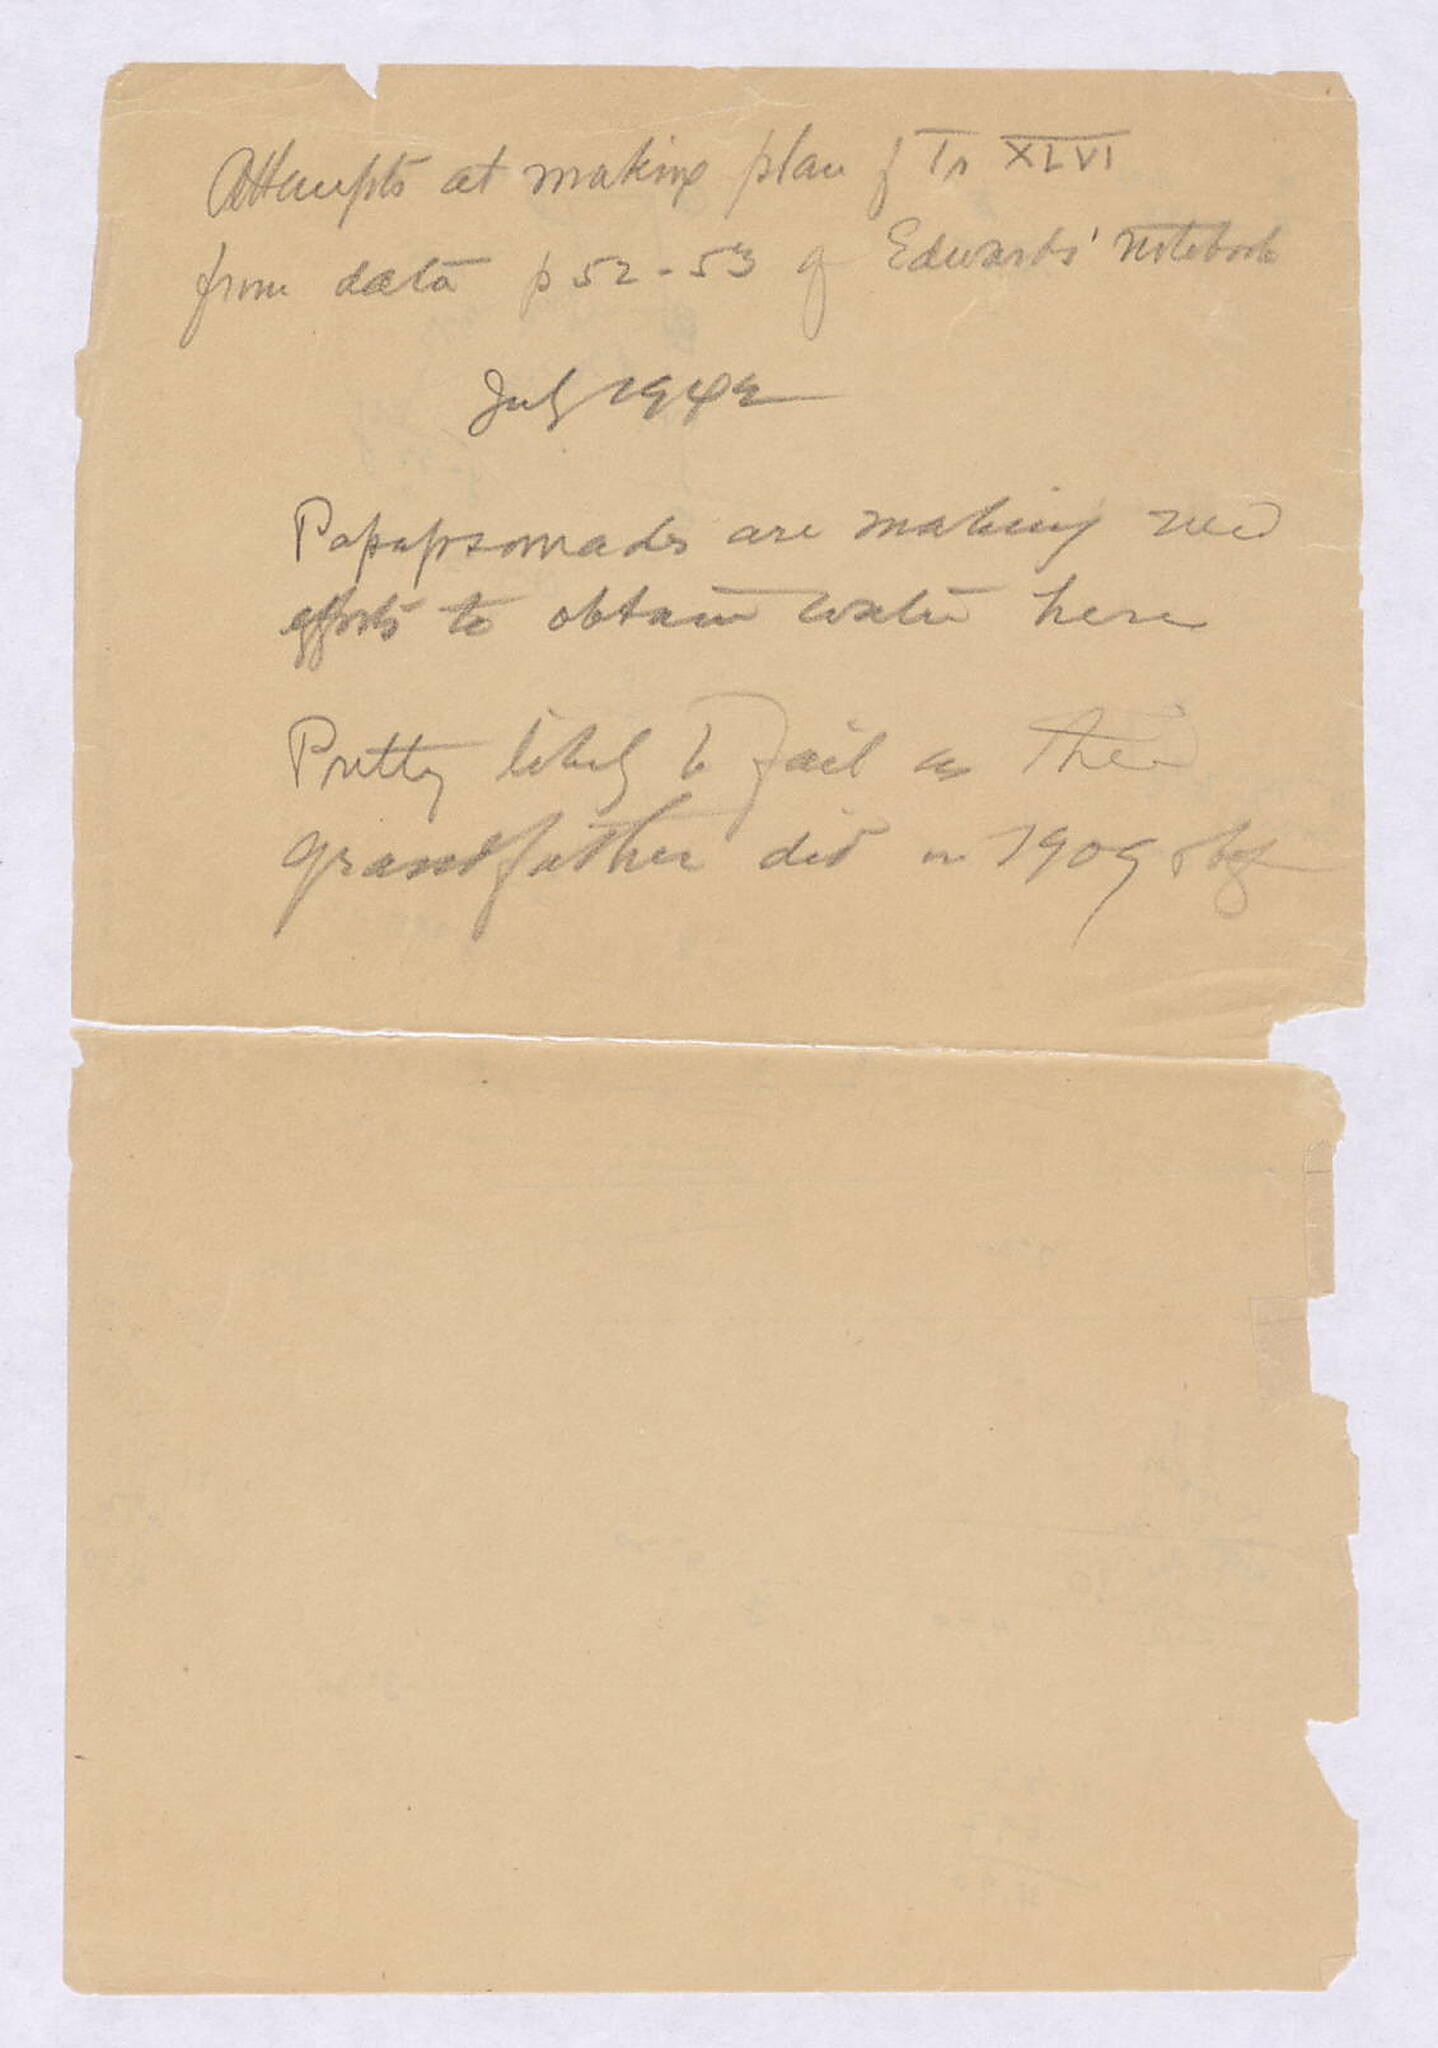 Attempts at making plan of Tr XLVI
from data p 52-53 of Edwards' notebook
July 1942
Papapsomades are making new
efforts to obtain water here
Pretty likely to fail as their
grandfather did in 1909